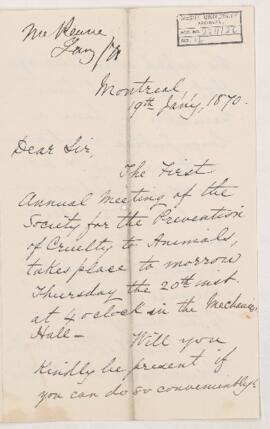 McGILL UNIVERSITY
ARCHIVES
ACC. NO.
REF.
Montreal
19th Jan'y, 1870.
Dear Sir,
The First
Annual Meeting of the
Society for the Prevention
of Cruelty to Animals,
takes place to morrow
Thursday the 20th inst
at 4 oclock in the Mechanics
Hall — Will you
Kindly be present if
you can do so conveniently